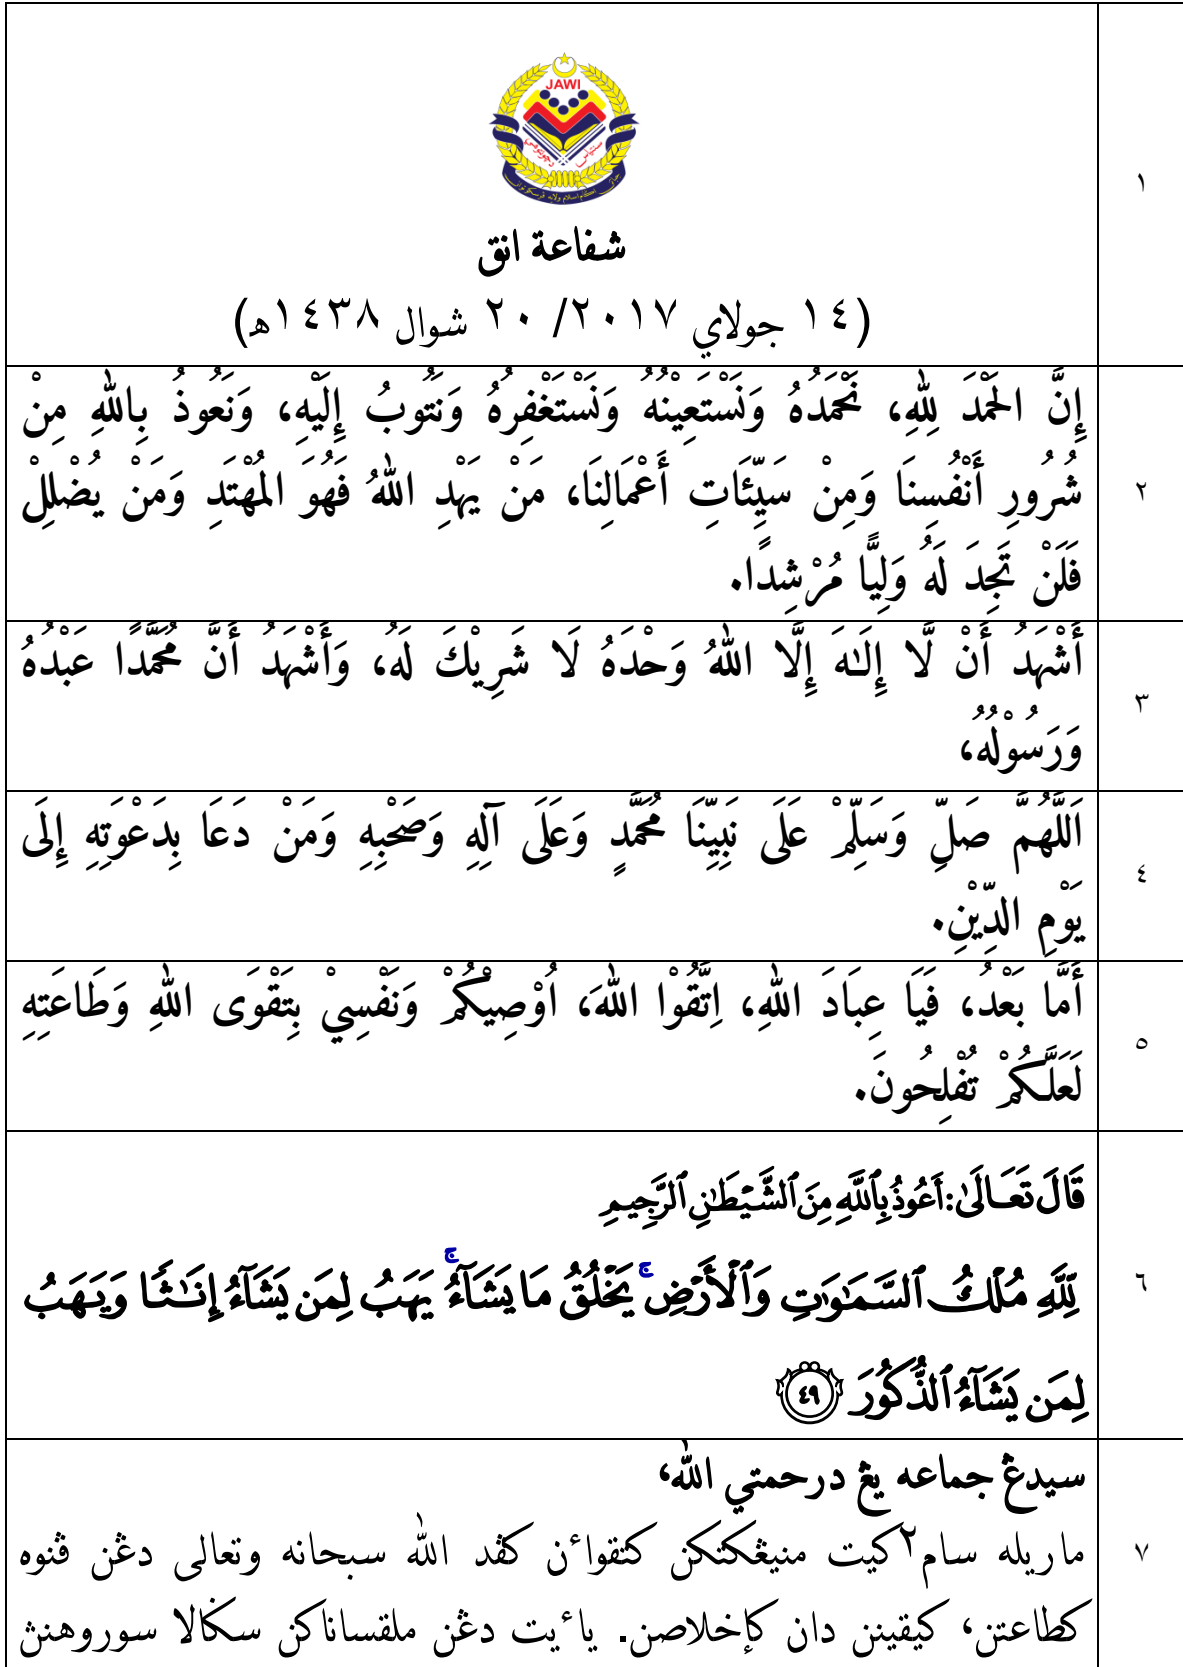 JAWI
شفاعة انق
(١٤ جولاي ٢٠١٧/ ٢٠ شوال ١٤٣٨ھ)
١
إِنَّ الْحَمْدَ لِلّٰهِ، نَحْمَدُهُ وَنَسْتَعِيْنُهُ وَنَسْتَغْفِرُهُ وَنَتُوبُ إِلَيْهِ، وَنَعُوذُ بِاللّٰهِ مِنْ
شُرُورِ أَنْفُسِنَا وَمِنْ سَيِّئَاتِ أَعْمَالِنَا، مَنْ يَهْدِ اللّٰهُ فَهُوَ الْمُهْتَدِ وَمَنْ يُضْلِلْ
فَلَنْ تَجِدَ لَهُ وَلِيًّا مُرْشِدًا.
٢
أَشْهَدُ أَنْ لَّا إِلَـٰهَ إِلَّا اللّٰهُ وَحْدَهُ لَا شَرِيْكَ لَهُ، وَأَشْهَدُ أَنَّ مُحَمَّدًا عَبْدُهُ
وَرَسُوْلُهُ،
٣
اَللّٰهُمَّ صَلِّ وَسَلِّمْ عَلَى نَبِيِّنَا مُحَمَّدٍ وَعَلَى آلِهِ وَصَحْبِهِ وَمَنْ دَعَا بِدَعْوَتِهِ إِلَى
يَوْمِ الدِّيْنِ.
٤
أَمَّا بَعْدُ، فَيَا عِبَادَ اللّٰهِ، اِتَّقُوْا اللّٰهَ، اُوْصِيْكُمْ وَنَفْسِيْ بِتَقْوَى اللّٰهِ وَطَاعَتِهِ
لَعَلَّكُمْ تُفْلِحُونَ.
٥
قَالَ تَعَالَىٰ: أَعُوذُ بِٱللَّهِ مِنَ ٱلشَّيْطَٰنِ ٱلرَّجِيمِ
لِّلَّهِ مُلْكُ ٱلسَّمَٰوَٰتِ وَٱلْأَرْضِ ۚ يَخْلُقُ مَا يَشَآءُ ۚ يَهَبُ لِمَن يَشَآءُ إِنَٰثًا وَيَهَبُ
لِمَن يَشَآءُ ٱلذُّكُورَ ﴿٤٩﴾
٦
سيدڠ جماعه يڠ درحمتي الله،
ماريله سام٢ كيت منيڠكتكن كتقواءن كڤد الله سبحانه وتعالى دڠن ڤنوه
كطاعتن، كيقينن دان كإخلاصن. ياءيت دڠن ملقساناكن سڬالا سوروهنڽ
٧